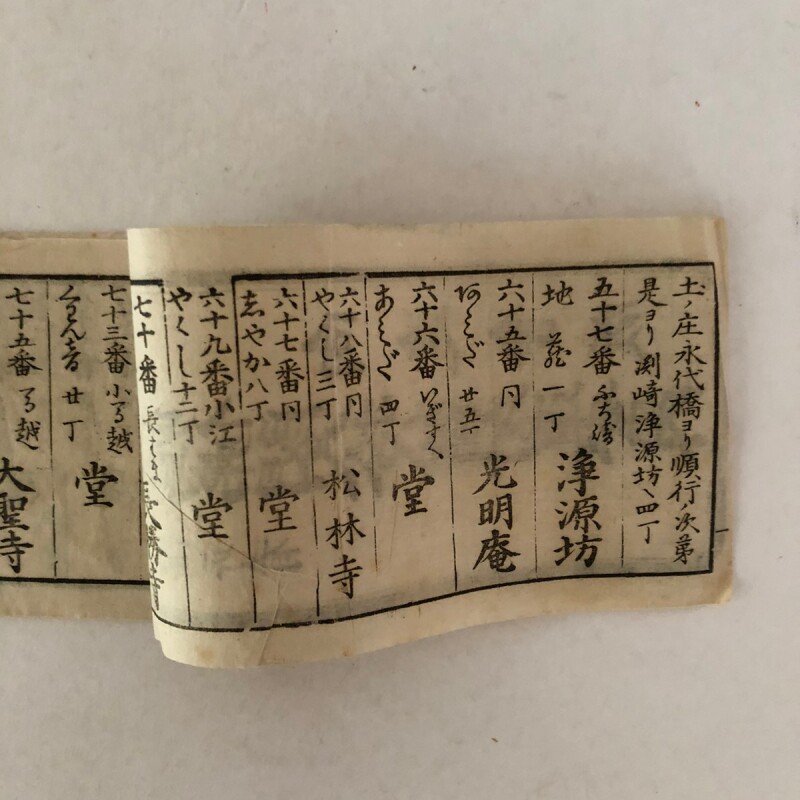 土ノ庄永代橋ヨリ順行ノ次第
是ヨリ渕崎浄源坊ヘ四丁
五十七番
地蔵一丁
浄源坊
六十五番 円
阿ミだ 廿五丁
光明庵
六十六番 いぎすへ
あみだ 四丁
堂
六十八番 円
やくし三丁
松林寺
六十七番 円
志やか八丁
堂
六十九番 小江
やくし十二丁
堂
七十番 長はま
七十三番 小馬越
くわん音 廿丁
堂
七十五番 馬越
大聖寺